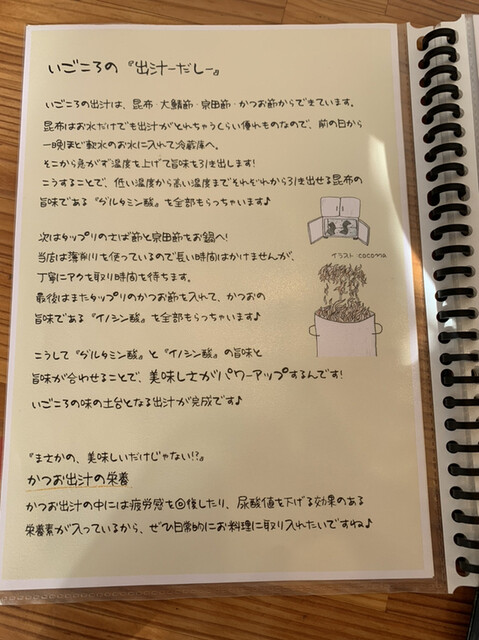 いごころの『出汁ーだしー』
いごころの出汁は、昆布・大鯖節・宗田節・かつお節からできています。
昆布はお水だけでも出汁がとれちゃうくらい優れものなので、前の日から
一晩ほど軟水のお水に入れて冷蔵庫へ。
そこから急がず温度を上げて旨味を引き出します!
こうすることで、低い温度から高い温度までそれぞれから引き出せる昆布の
旨味である『グルタミン酸』を全部もらっちゃいます♪
次はタップリのさば節と宗田節をお鍋へ!
当店は薄削りを使っているので長い時間はかけませんが、
丁寧にアクを取り時間を待ちます。
最後はまたタップリのかつお節を入れて、かつおの
旨味である『イノシン酸』を全部もらっちゃいます♪
イラスト cocoma
こうして『グルタミン酸』と『イノシン酸』の旨味と
旨味が合わせることで、美味しさがパワーアップするんです!
いごころの味の土台となる出汁が完成です♪
『まさかの、美味しいだけじゃない!?』
かつお出汁の栄養
かつお出汁の中には疲労感を回復したり、尿酸値を下げる効果のある
栄養素が入っているから、ぜひ日常的にお料理に取り入れたいですね♪